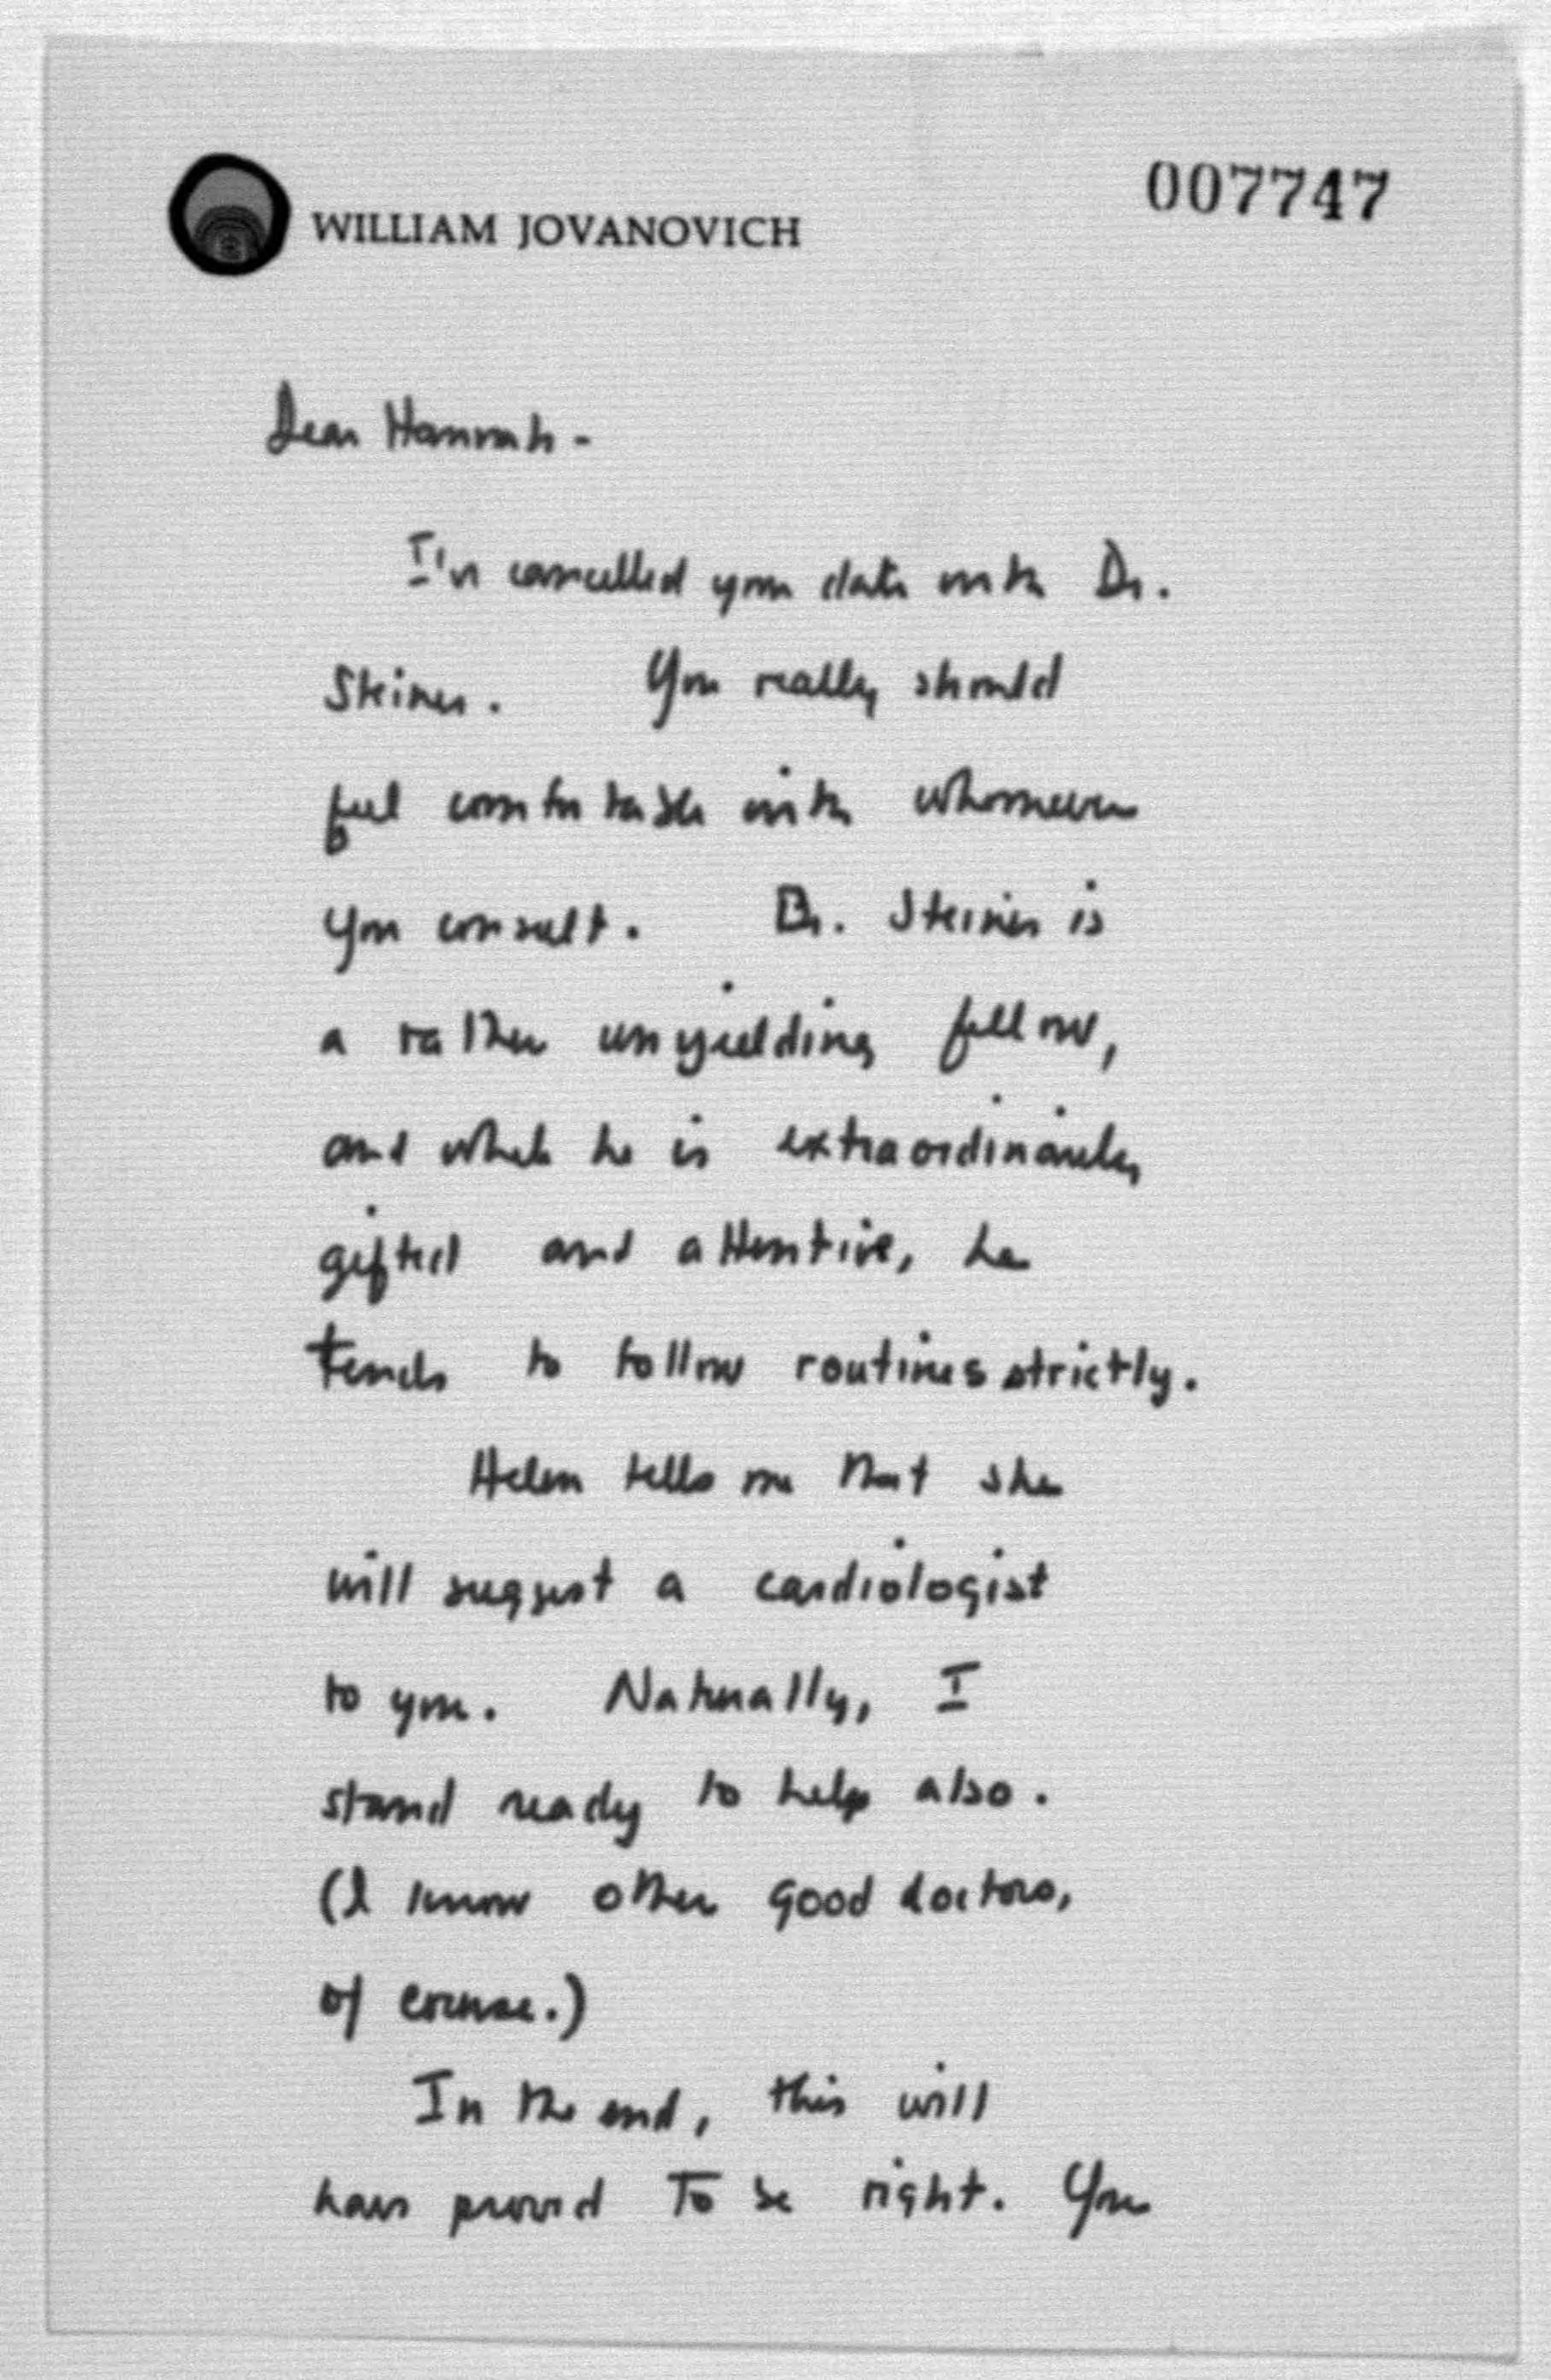 007747
WILLIAM JOVANOVICH
Dear Hannah -
I've cancelled your date with Dr.
Steiner. You really should
feel comfortable with whomever
you consult. Dr. Steiner is
a rather unyielding fellow,
and while he is extraordinarily
gifted and attentive, he
tends to follow routines strictly.
Helen tells me that she
will suggest a cardiologist
to you. Naturally, I
stand ready to help also.
(I know other good doctors,
of course.)
In the end, this will
have proved to be right. You